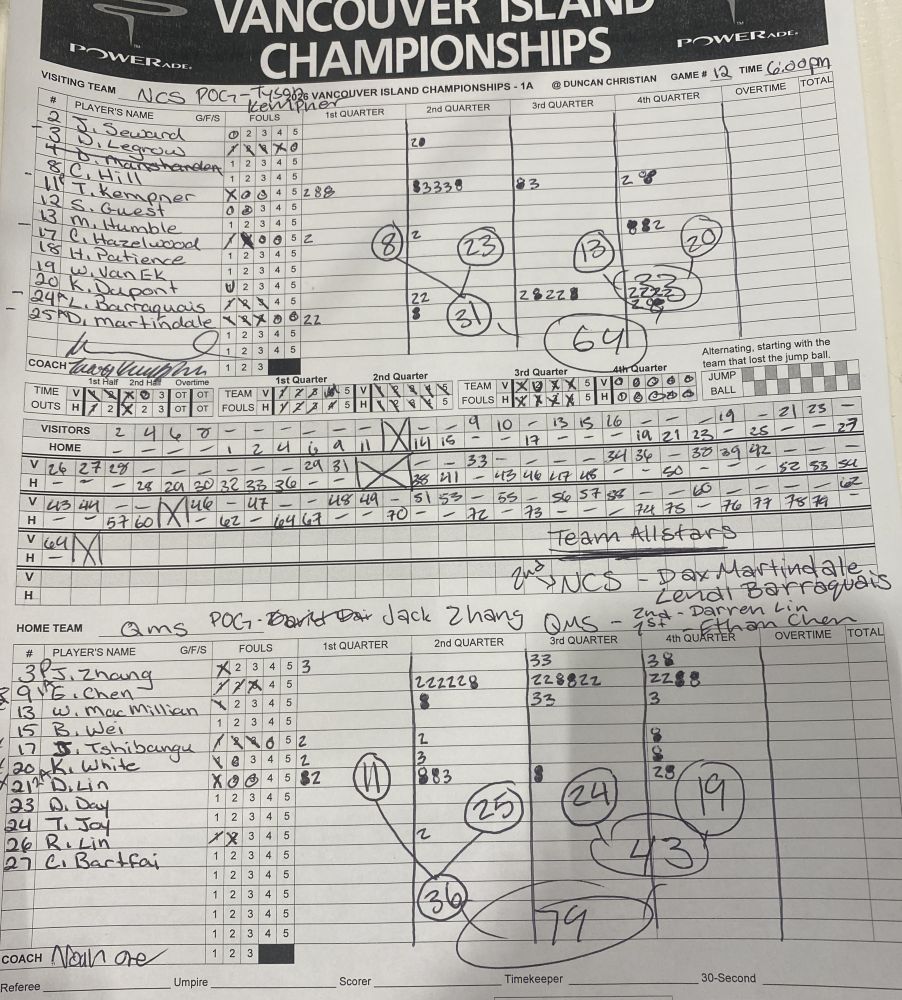 VANCOUVER ISLAND
CHAMPIONSHIPS
POWERADE
POWERADE
VISITING TEAM NCS POG-Tyson Kempner 2026 VANCOUVER ISLAND CHAMPIONSHIPS - 1A @ DUNCAN CHRISTIAN GAME # 12 TIME 6:00pm
# PLAYER'S NAME G/F/S FOULS 1st QUARTER 2nd QUARTER 3rd QUARTER 4th QUARTER OVERTIME TOTAL
2 J. Seward 1 2 3 4 5
3 D. Legrow 20
4 D. Manshanden 1 2 3 4 5
8 C. Hill 1 2 3 4 5
11 T. Kempner 288 83338 83 2
12 S. Guest 3 4 5
13 M. Humble 1 2 3 4 5 882
17 C. Hazelwood 5 2 2
18 H. Patience 1 2 3 4 5
19 W. Van EK 1 2 3 4 5
20 K. Dupont 2 3 4 5
24 L. Barraquais 4 5 22 28228
25 D. Martindale 22 8
8 23 13 20
31 64
1 2 3 4 5
1 2 3 4 5
COACH 1 2 3
1st Half 2nd Half Overtime 1st Quarter 2nd Quarter 3rd Quarter 4th Quarter
TIME OUTS V H OT OT TEAM FOULS V H V H TEAM FOULS V H V H
Alternating, starting with the team that lost the jump ball.
JUMP BALL
VISITORS 2 4 6 8 - - - - - - - X - - - 9 10 - 13 15 16 - - - 19 - 21 23 -
HOME - - - - 1 2 4 6 9 11 X 14 15 - - 17 - - - 19 21 23 - 25 - - - 27
V 26 27 28 - - - - - - 29 31 X - - 33 - - - - 34 36 - - 38 39 42 - - -
H - - - 28 29 30 32 33 36 - - X 38 41 - 43 46 47 48 - - 50 - - - 52 53 54
V 43 44 - - X 46 - 47 - - 48 49 - 51 53 - 55 - 56 57 58 - - 60 - - - - 62
H - - 57 60 X - 62 - 64 67 - - 70 - - 72 - 73 - - - 74 75 - 76 77 78 79 -
V 64 X
H - X
Team Allstars
V
H
2nd → NCS - Dax Martindale
Lendl Barraquais
HOME TEAM Qms POG- Jack Zhang QMS - 2nd - Darren Lin
1st - Ethan Chen
# PLAYER'S NAME G/F/S FOULS 1st QUARTER 2nd QUARTER 3rd QUARTER 4th QUARTER OVERTIME TOTAL
3 J. Zhang X 2 3 4 5 3 33 38
9 E. Chen 4 5 222228 228822 2288
13 W. MacMillian 2 3 4 5 8 33 3
15 B. Wei 1 2 3 4 5
17 J. Tshibangu 5 2 2 8
20 K. White 3 4 5 2 3 8
21 D. Lin 4 5 82 883 8 28
23 D. Day 1 2 3 4 5
24 T. Joy 1 2 3 4 5
26 R. Lin 3 4 5 2
27 C. Bartfai 1 2 3 4 5
11 25 24 19
43
1 2 3 4 5
1 2 3 4 5
36 79
1 2 3 4 5
1 2 3 4 5
COACH 1 2 3
Referee Umpire Scorer Timekeeper 30-Second